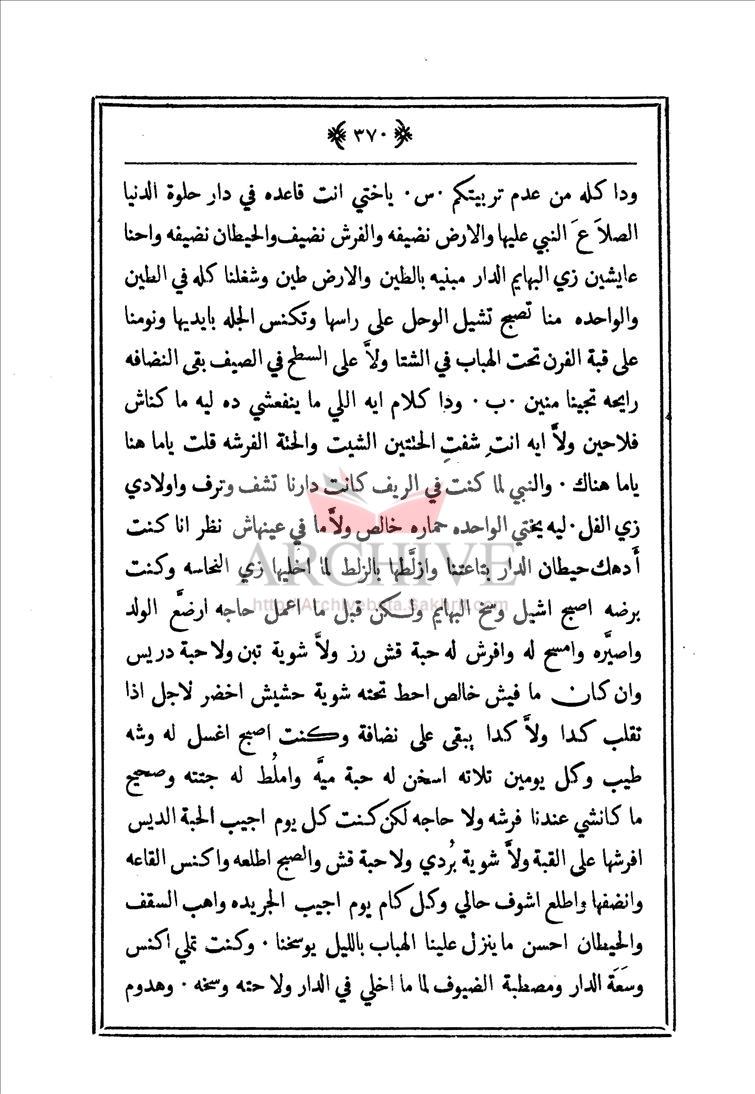 ﴿ ٣٧٠ ﴾
ودا كله من عدم تربيتكم ٠س٠ ياختي انت قاعده في دار حلوة الدنيا
الصلاَ عَ النبي عليها والارض نضيفه والفرش نضيف والحيطان نضيفه واحنا
عايشين زي البهايم الدار مبنيه بالطين والارض طين وشغلنا كله في الطين
والواحده منا تصبح تشيل الوحل على راسها وتكنس الجله بايديها ونومنا
على قبة الفرن تحت الهباب في الشتا ولاَّ على السطح في الصيف بقى النضافه
رايحه تجينا منين ٠ب٠ ودا كلام ايه اللي ما ينفعشي ده ليه ما كناش
فلاحين ولاَّ ايه انتِ شفتِ الحتتين الشيت والحتة الفرشه قلت ياما هنا
ياما هناك ٠ والنبي لما كنت في الريف كانت دارنا تشف وترف واولادي
زي الفل ٠ ليه يختي الواحده حماره خالص ولاَّ ما في عينهاش نظر انا كنت
أدهك حيطان الدار بتاعتنا وازلَّطها بالزلط لما اخليها زي النحاسه وكنت
ARCHIVE
http://Archivebeta.Sakhrit.com
برضه اصبح اشيل وسخ البهايم ولكن قبل ما اعمل حاجه ارضَّع الولد
واصيَّره وامسح له وافرش له حبة قش رز ولاَّ شوية تبن ولا حبة دريس
وان كان ما فيش خالص احط تحته شوية حشيش اخضر لاجل اذا
تقلب كدا ولاَّ كدا يبقى على نضافة وكنت اصبح اغسل له وشه
طيب وكل يومين تلاته اسخن له حبة ميَّه واملُط له جتته وصحيح
ما كانشي عندنا فرشه ولا حاجه لكن كنت كل يوم اجيب الحبة الديس
افرشها على القبة ولاَّ شوية بُردي ولا حبة قش والصبح اطلعه واكنس القاعه
وانضفها واطلع اشوف حالي وكل كام يوم اجيب الجريده واهب السقف
والحيطان احسن ما ينزل علينا الهباب بالليل يوسخنا ٠ وكنت تملي اكنس
وسَعَة الدار ومصطبة الضيوف لما ما اخلي في الدار ولا حته وسخه ٠ وهدوم